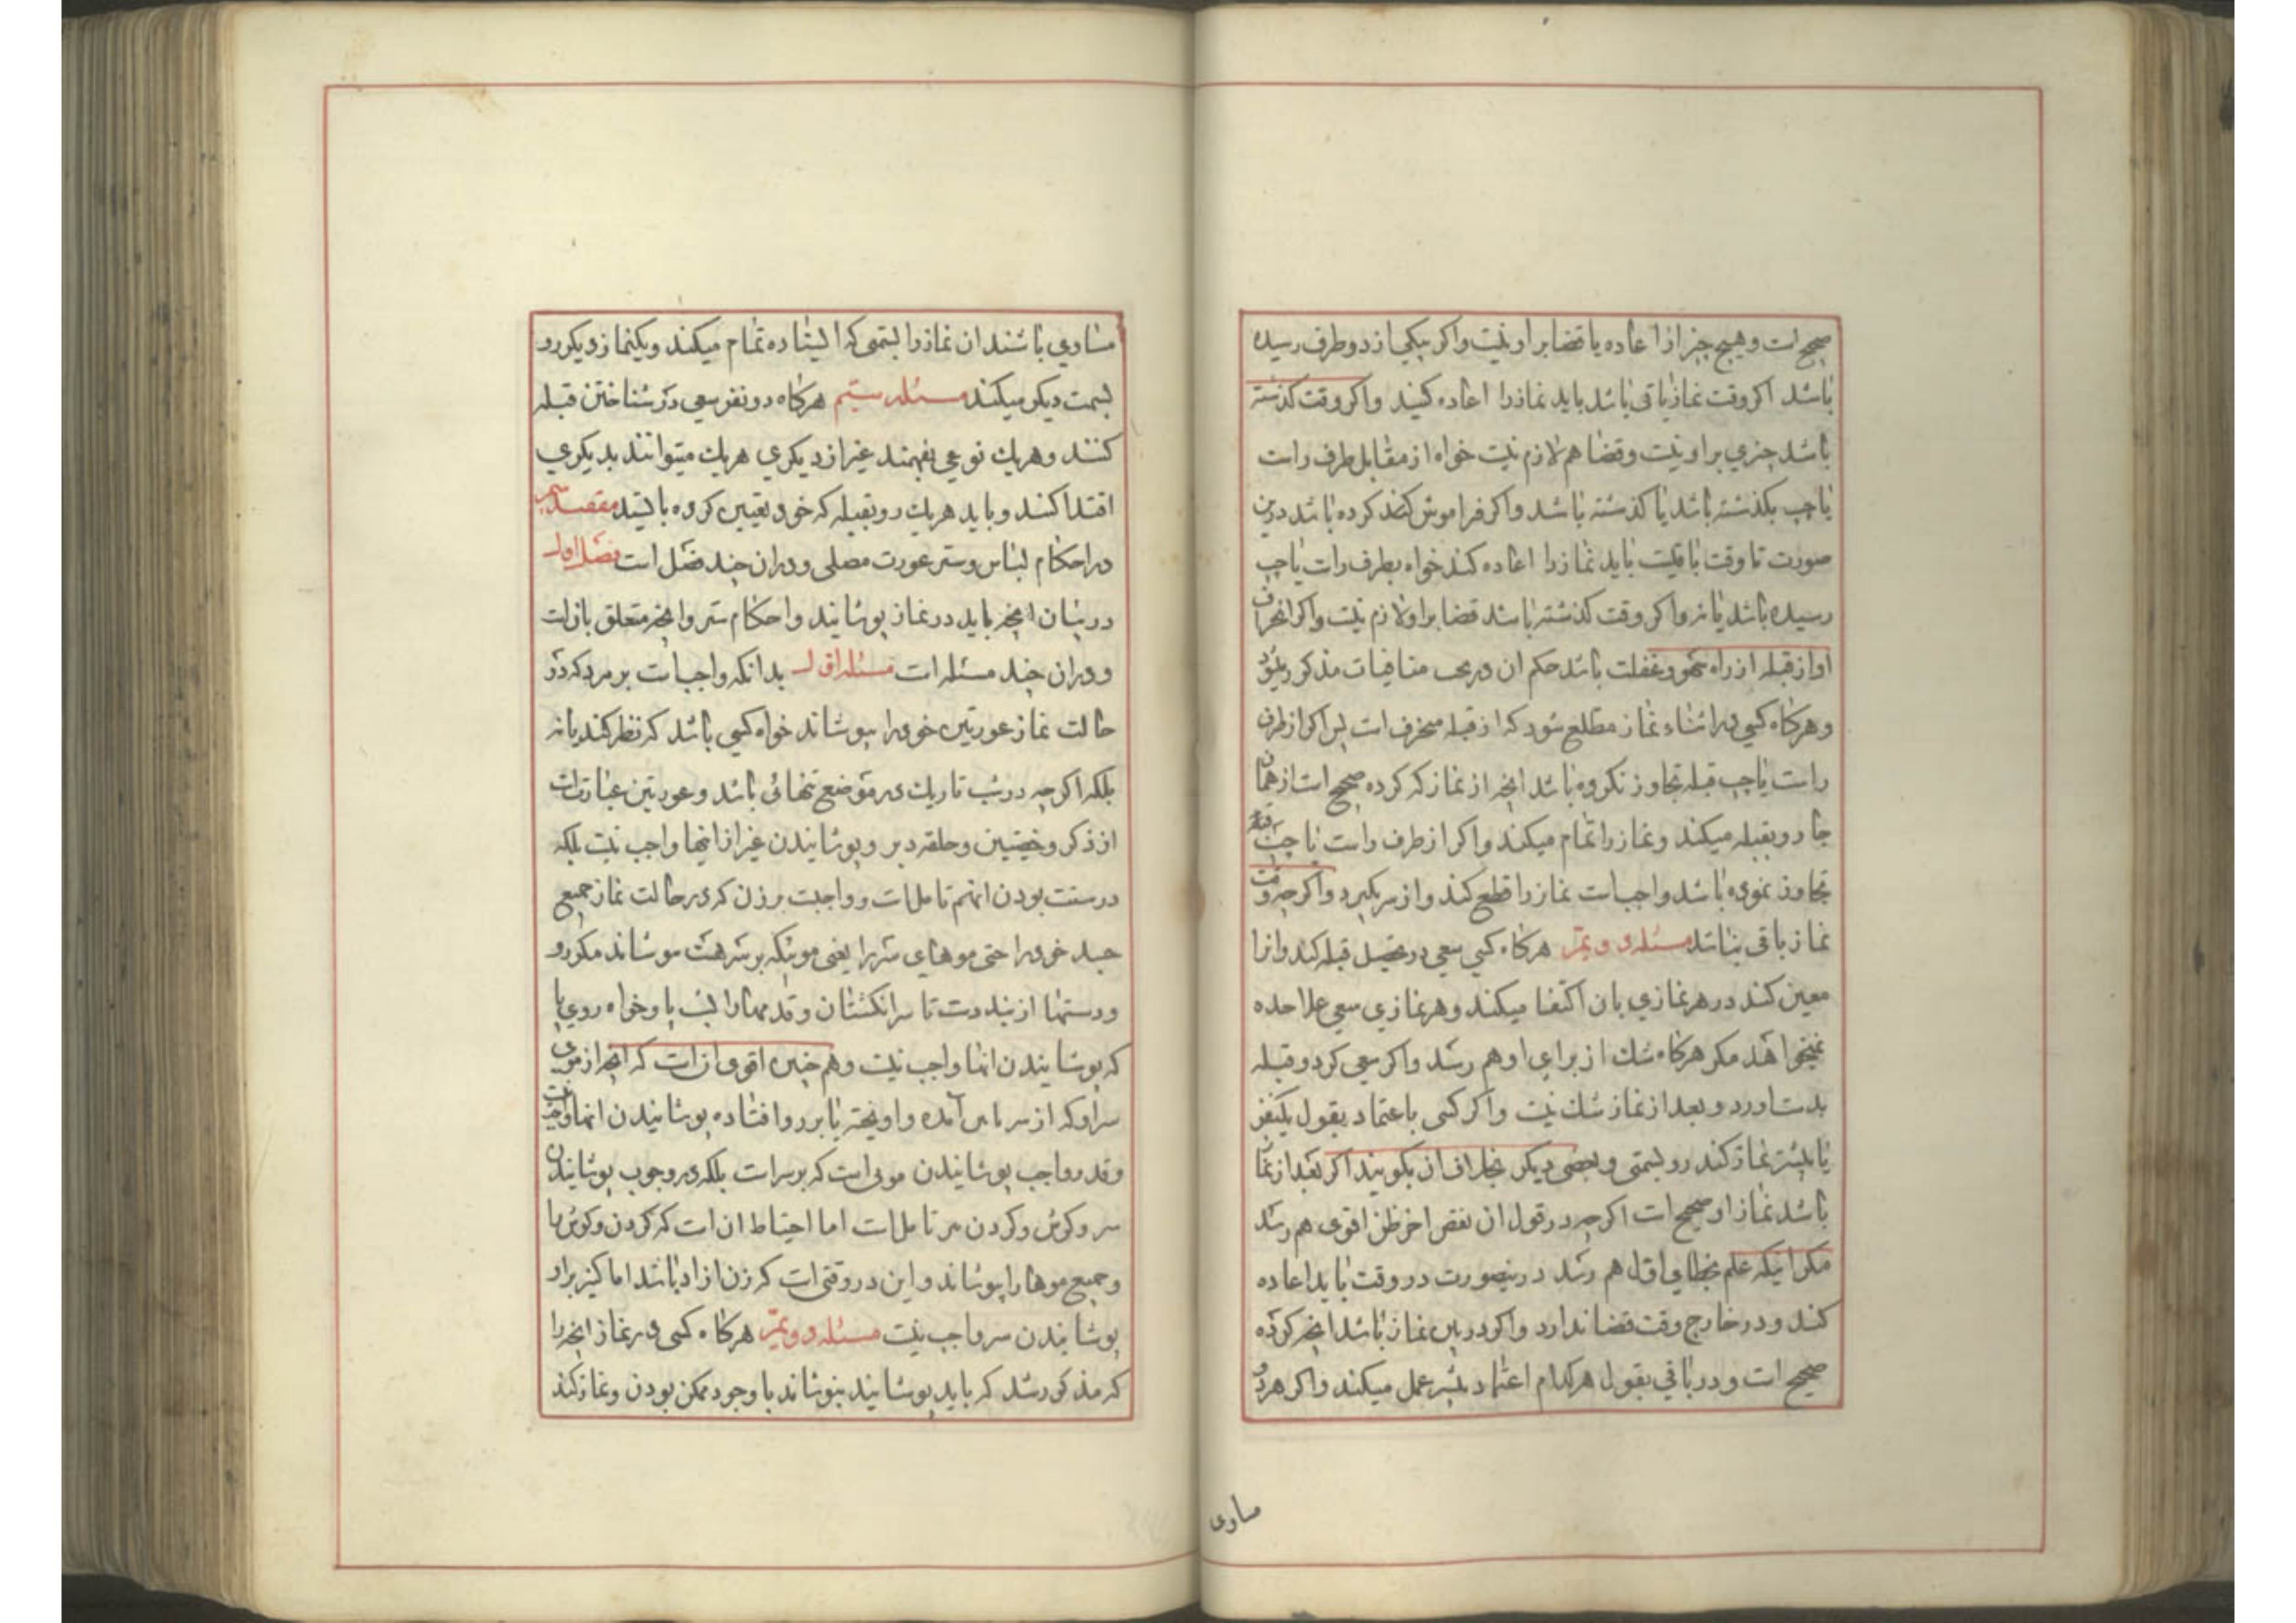 صحیح است و هیچ چیز از اعاده یا قضا بر او نیست و اکر بیکی از دو طرف رسیده
باشد اکر وقت نماز باقی باشد باید نماز را اعاده کنید و اکر وقت کذشته
باشد چیزی بر او نیست و قضا هم لازم نیست خواه از مقابل طرف راست
یا چپ بکذشته باشد یا کذشته باشد و اکر فراموش کرده باشد درین
صورت تا وقت باقیست باید نماز را اعاده کند خواه بطرف راست یا چپ
رسیده باشد یا نه و اکر وقت کذشته باشد قضا بر او لازم نیست و اکر انحراف
او از قبله از راه سهو و غفلت باشد حکم ان در بحث منافیات مذکور میشود
و هرکاه کسی در اثناء نماز مطلع شود که از قبله منحرف است پس اکر از طرف
راست یا چپ قبله تجاوز نکرده باشد انچه از نماز که کرده صحیح است از همان
جا رو بقبله میکند و نماز را تمام میکند و اکر از طرف راست یا چپ قبله
تجاوز نموده باشد واجب است نماز را قطع کند و از سر بکیرد و اکرچه وقت
نماز باقی نباشد مسئله دویم هرکاه کسی سعی در تحصیل قبله کند و انرا
معین کند در هر نمازی بان اکتفا میکند و هر نمازی سعی علاحده
نمیخواهد مکر هرکاه شک از برای او هم رسد و اکر سعی کرد و قبله
بدست اورد و بعد از نماز شک نیست و اکر کسی باعتماد بقول یکنفر
یا بیشتر نماز کند رو بسمتی و بعضی دیکر بخلاف ان بکویند اکر بعد از نماز
باشد نماز او صحیح است اکرچه در قول ان بعض اخر ظن اقوی هم رسد
مکر اینکه علم بخطای اول هم رسد درینصورت در وقت باید اعاده
کند و در خارج وقت قضا ندارد و اکر در بین نماز باشد انچه کرده
صحیح است و در باقی بقول هرکدام اعتماد بیشتر عمل میکند و اکر هر دو
مساوی
مساوی باشند ان نماز را بسمتی که ایستاده تمام میکند و یکنماز دیکر رو
بسمت دیکر میکند مسئله سیّم هرکاه دو نفر سعی در شناختن قبله
کنند و هریک نوعی بفهمند غیر از دیکری هریک میتوانند بدیکری
اقتدا کنند و باید هریک رو بقبله که خود تعیین کرده بایستد مقصد
در احکام لباس و ستر عورت مصلی و در ان چند فصل است فصل اول
در بیان انچه باید در نماز پوشانید و احکام ستر و انچه متعلق بان است
و در ان چند مسئله است مسئله اول بدانکه واجب است بر مرد که در
حالت نماز عورتین خود را بپوشاند خواه کسی باشد که نظر کند یا نه
بلکه اکرچه در شب تاریک در موضع تنهائی باشد و عورتین عبارت است
از ذکر و خصیتین و حلقه دبر و پوشانیدن غیر از اینها واجب نیست بلکه
در سنت بودن انهم تامل است و واجبست بر زن که در حالت نماز جمیع
جسد خود را حتی موهای سر را یعنی موئیکه بر سر هست بپوشاند مکر رو
و دستها از بند دست تا سر انکشتان و قدمها را پشت پا و خواه روی پا
که پوشانیدن انها واجب نیست و هم چنین اقوی ان است که انچه از موی
سر او که از سر پایین آمده و اویخته یا بر رو افتاده پوشانیدن انها واجب نیست
و قدر واجب پوشانیدن موئی است که بر سر است بلکه در وجوب پوشانیدن
سر و کوش و کردن هم تامل است اما احتیاط ان است که کردن و کوش را
و جمیع موها را بپوشاند و این در وقتی است که زن ازاد باشد اما کنیز بر او
پوشانیدن سر واجب نیست مسئله دویّم هرکاه کسی در نماز انچه را
که مذکور شد که باید پوشانید نپوشاند با وجود ممکن بودن و نماز کند